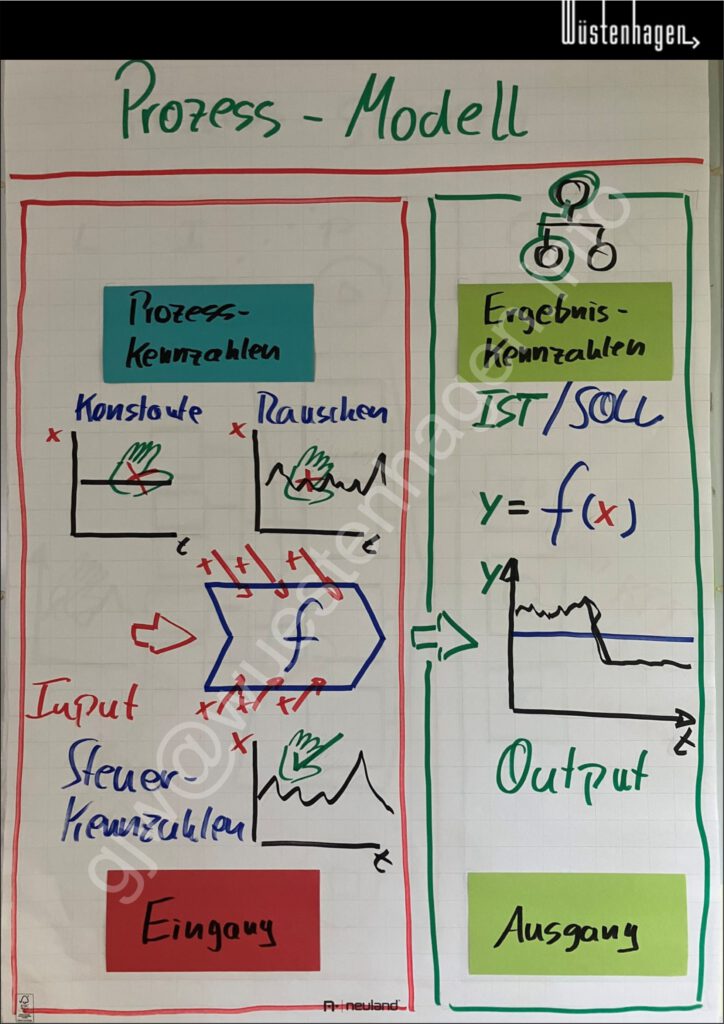 Wüstenhagen
Prozess - Modell
Prozess-
Kennzahlen
Konstante
Rauschen
x
t
x
t
x x x
f
Input
x x x
Steuer-
Kennzahlen
x
t
Eingang
Ergebnis-
Kennzahlen
IST/SOLL
y = f(x)
y
t
Output
Ausgang
gjv@wuestenhagen.info
neuland
FSC